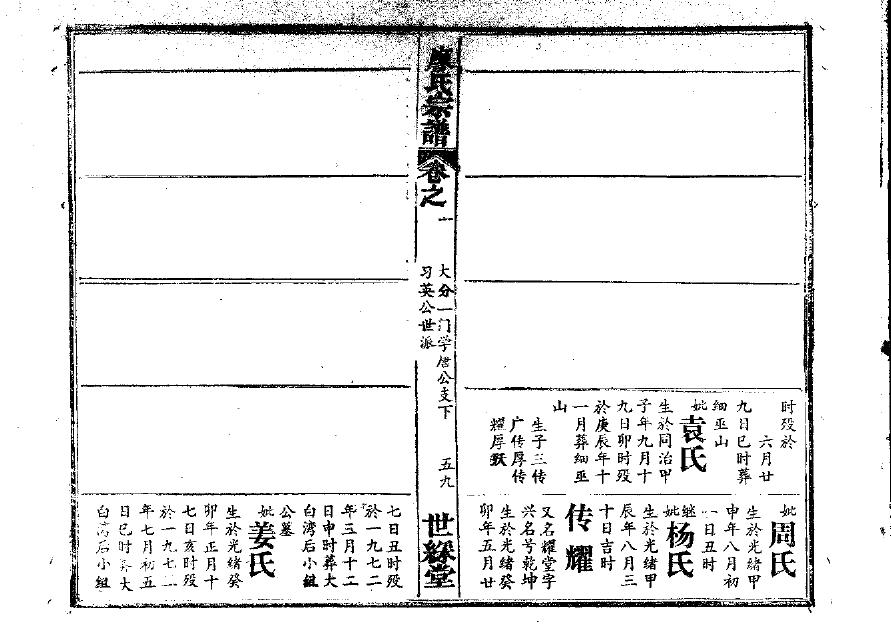 时殁於
六月廿
九日巳时葬
细巫山
妣袁氏
生於同治甲
子年九月十
九日卯时殁
於庚辰年十
一月葬细巫
山
生子三传
广传厚传
耀厚
妣周氏
生於光绪甲
申年八月初
一日丑时
继妣杨氏
生於光绪甲
辰年八月三
十日吉时
传耀
又名耀堂字
兴名号乾坤
生於光绪癸
卯年五月廿
廖氏宗譜
卷之
一
大分一门学唐公支下
习英公世派
五九
世綵堂
七日丑时殁
於一九七二
年三月十二
日申时葬大
白湾后小组
公墓
妣姜氏
生於光绪癸
卯年正月十
七日亥时殁
於一九七二
年七月初五
日巳时葬大
白湾后小组